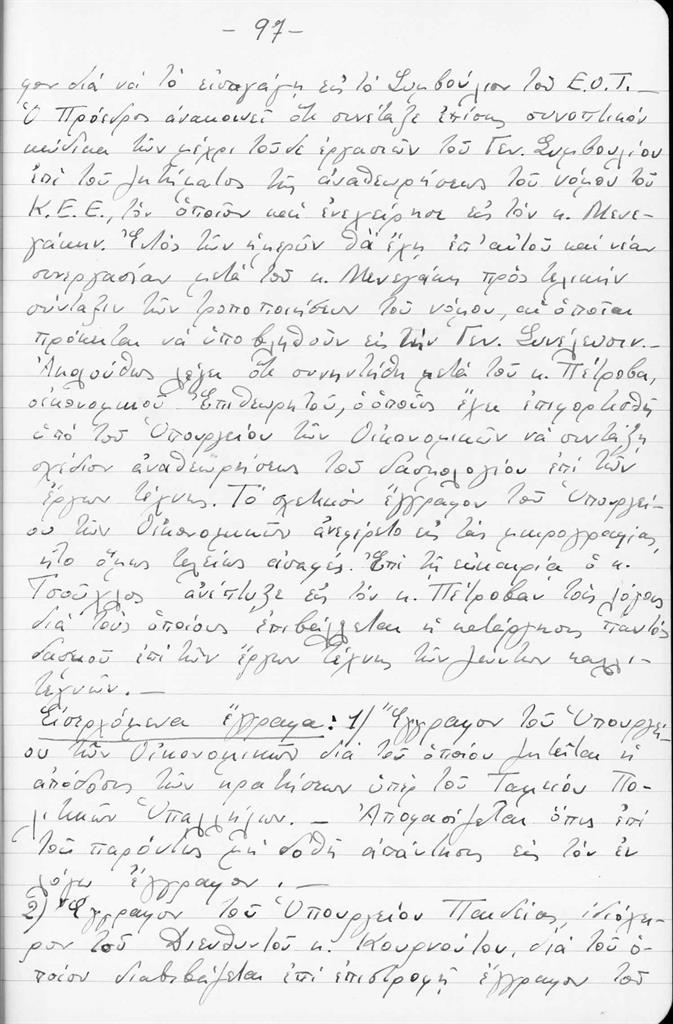 - 97 -
φον διά νά τό εἰσαγάγῃ εἰς τό Συμβούλιον τοῦ Ε.Ο.Τ. —
Ὁ Πρόεδρος ἀνακοινεῖ ὅτι συνέταξε ἐπίσης συνοπτικόν
κώδικα τῶν μέχρι τοῦδε ἐργασιῶν τοῦ Γεν. Συμβουλίου
ἐπί τοῦ ζητήματος τῆς ἀναθεωρήσεως τοῦ νόμου τοῦ
Κ.Ε.Ε., τόν ὁποῖον καί ἐνεχείρησε εἰς τόν κ. Μενε-
γάκην. Ἐντός τῶν ἡμερῶν θά ἔχῃ ἐπ' αὐτοῦ καί νέαν
συνεργασίαν μετά τοῦ κ. Μενεγάκη πρός τελικήν
σύνταξιν τῶν τροποποιήσεων τοῦ νόμου, αἱ ὁποῖαι
πρόκειται νά ὑποβληθοῦν εἰς τήν Γεν. Συνέλευσιν. —
Ἀκολούθως λέγει ὅτι συνηντήθη μετά τοῦ κ. Πέτροβα,
οἰκονομικοῦ Ἐπιθεωρητοῦ, ὁ ὁποῖος ἔχει ἐπιφορτισθῆ
ὑπό τοῦ Ὑπουργείου τῶν Οἰκονομικῶν νά συντάξῃ
σχέδιον ἀναθεωρήσεως τοῦ δασμολογίου ἐπί τῶν
ἔργων τέχνης. Τό σχετικόν ἔγγραφον τοῦ Ὑπουργεί-
ου τῶν Οἰκονομικῶν ἀνεφέρετο εἰς τάς μικρογραφίας,
ἦτο ὅμως τελείως ἀσαφές. Ἐπί τῇ εὐκαιρίᾳ ὁ κ.
Τσούχλος ἀνέπτυξε εἰς τόν κ. Πέτροβαν τούς λόγους
διά τούς ὁποίους ἐπιβάλλεται ἡ κατάργησις παντός
δασμοῦ ἐπί τῶν ἔργων τέχνης τῶν ζώντων καλλι-
τεχνῶν. —
Εἰσερχόμενα ἔγγραφα: 1) Ἔγγραφον τοῦ Ὑπουργεί-
ου τῶν Οἰκονομικῶν διά τοῦ ὁποίου ζητεῖται ἡ
ἀπόδοσις τῶν κρατήσεων ὑπέρ τοῦ Ταμείου Πο-
λιτικῶν Ὑπαλλήλων. — Ἀποφασίζεται ὅπως ἐπί
τοῦ παρόντος μή δοθῇ ἀπάντησις εἰς τόν ἐν
λόγῳ ἔγγραφον. —
2) Ἔγγραφον τοῦ Ὑπουργείου Παιδείας, ἰδιόχει-
ρον τοῦ Διευθυντοῦ κ. Κουρνούτου, διά τοῦ ὁ-
ποίου διαβιβάζεται ἐπί ἐπιστροφῇ ἔγγραφον τοῦ